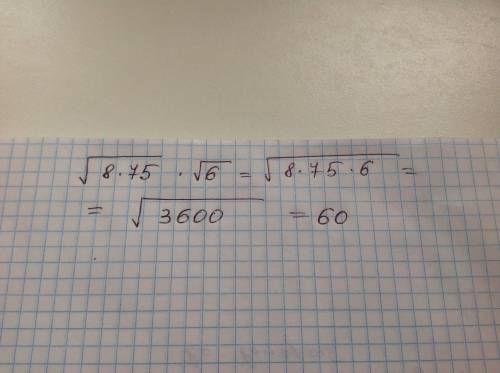 √8·75 · √6 = √8·75·6 =
= √3600 = 60